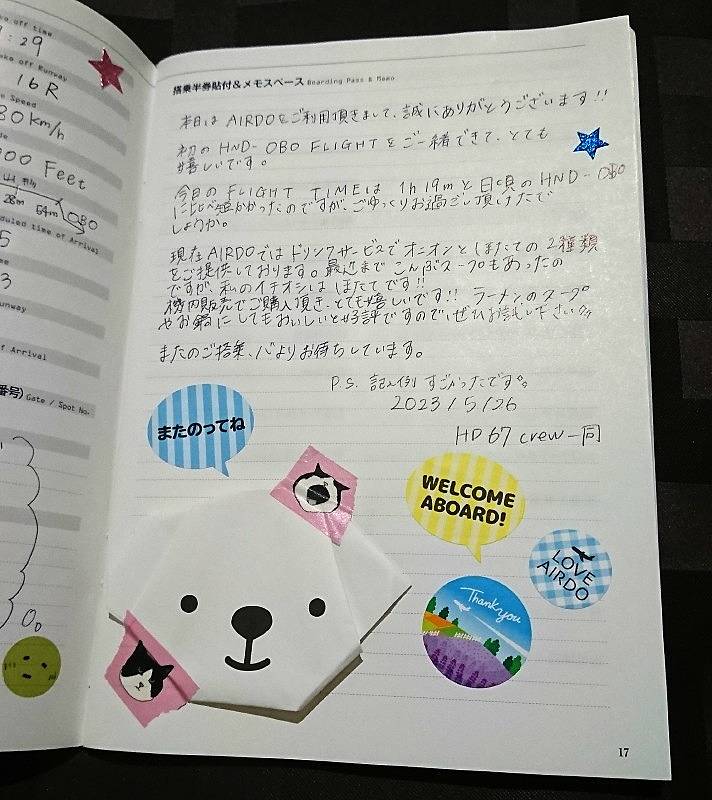 ke off time
9:29
ke off Runway
16R
e Speed
80 km/h
de
000 Feet
28m
54m
OBO
duled time of Arrival
5
me
3
unway
of Arrival
番号) Gate / Spot No.
搭乗半券貼付&メモスペース Boarding Pass & Memo
本日は AIRDOをご利用頂きまして、誠にありがとうございます!!
初の HND-OBO FLIGHTを ご一緒できて、とても
嬉しいです。
今日の FLIGHT TIMEは 1h19mと 日頃の HND-OBO
に比べ短かかったのですが、ごゆっくりお過ごし頂けたで
しょうか。
現在 AIRDOでは ドリンクサービスで オニオンと ほたての 2種類
をご提供しております。最近まで こんぶスープもあったの
ですが、私のイチオシは ほたてです!!
機内販売でご購入頂き、とても嬉しいです!! ラーメンのスープ
やお鍋にしてもおいしいと好評ですので、ぜひお試し下さい
またのご搭乗、心よりお待ちしています。
P.S. 記入例 すごかったです。
2023/5/26
HD 67 crew一同
またのってね
WELCOME
ABOARD!
LOVE
AIRDO
Thank you
17